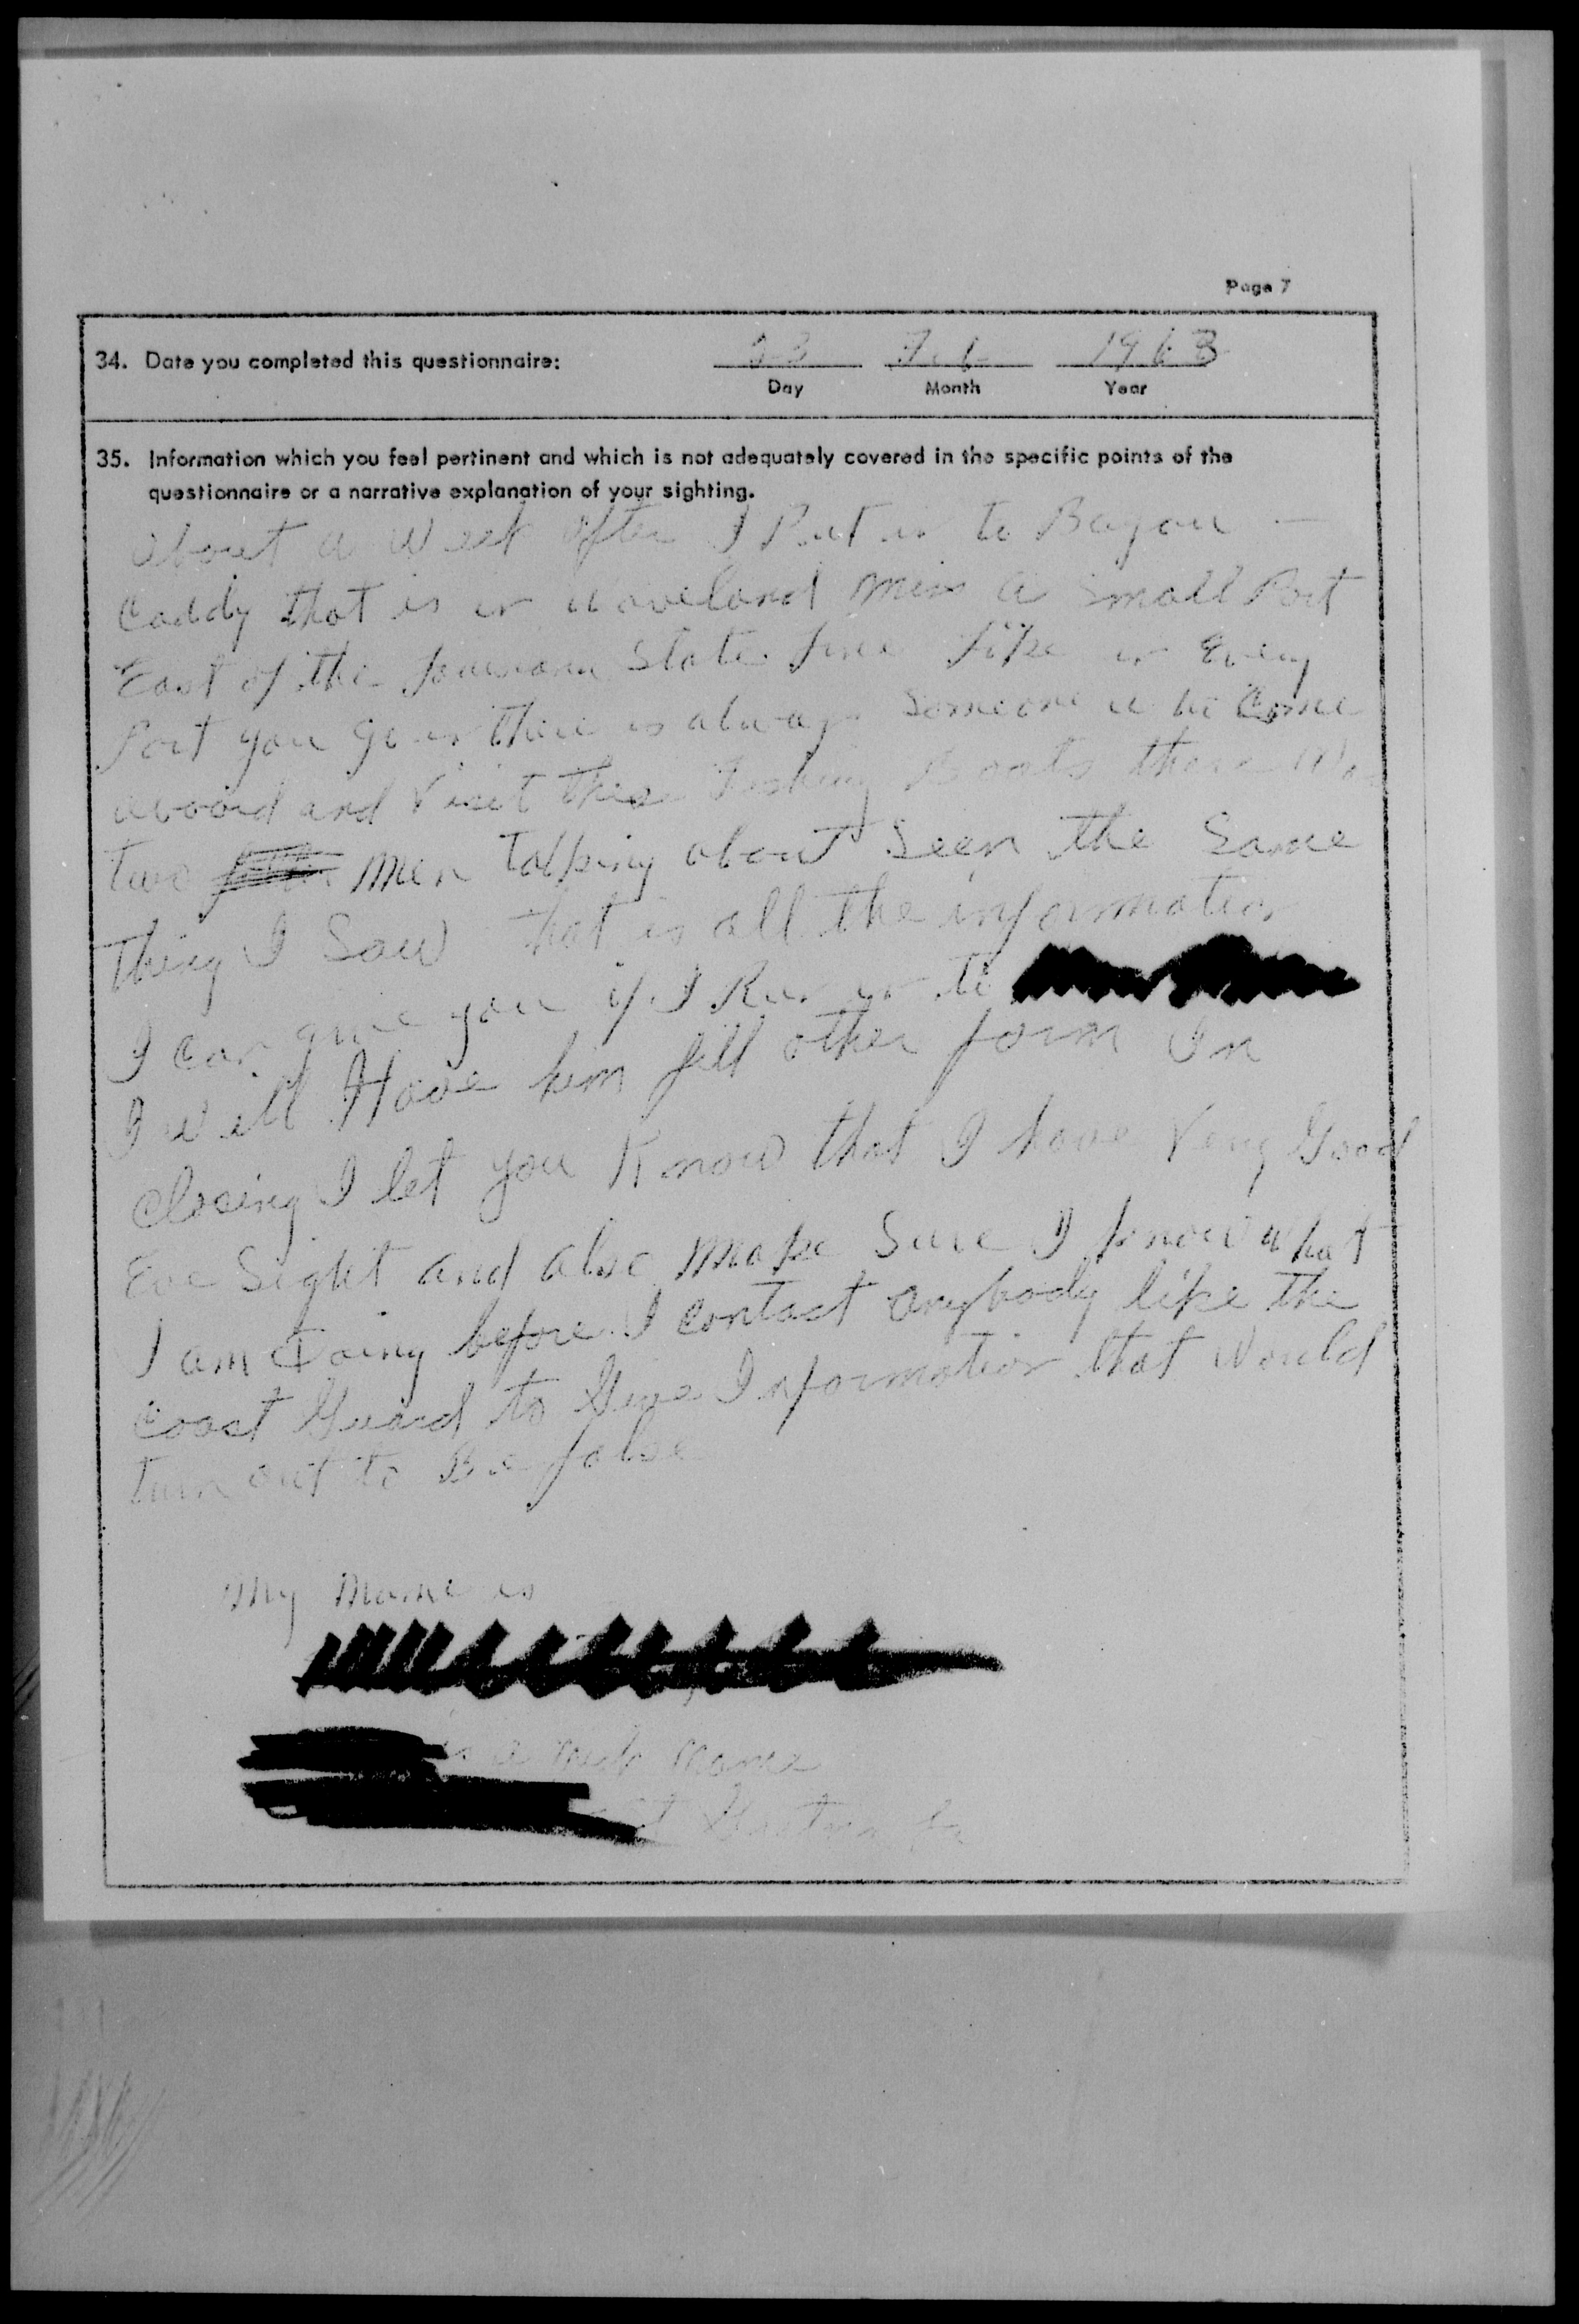 Page 7
34. Date you completed this questionnaire: Feb 1963
Day Month Year
35. Information which you feel pertinent and which is not adequately covered in the specific points of the
questionnaire or a narrative explanation of your sighting.
about a Week after I Put in to Bayou
Caddy that is in Waveland Miss a Small Port
East of the Louisiana State line like in Every
Port you go in there is always Someone who Come
aboard and Visit these Fishing Boats there Was
two men talking about Seen the Same
thing I Saw that is all the information
I can give you if I Run in to
I will Have him fill other form In
Closing I let you Know that I have Very Good
Eye Sight and also Make Sure I know what
I am Doing before I contact anybody like the
Coast Guard to Give Information that Would
turn out to Be false
My Name is
is a Nick Name
St Gretna La